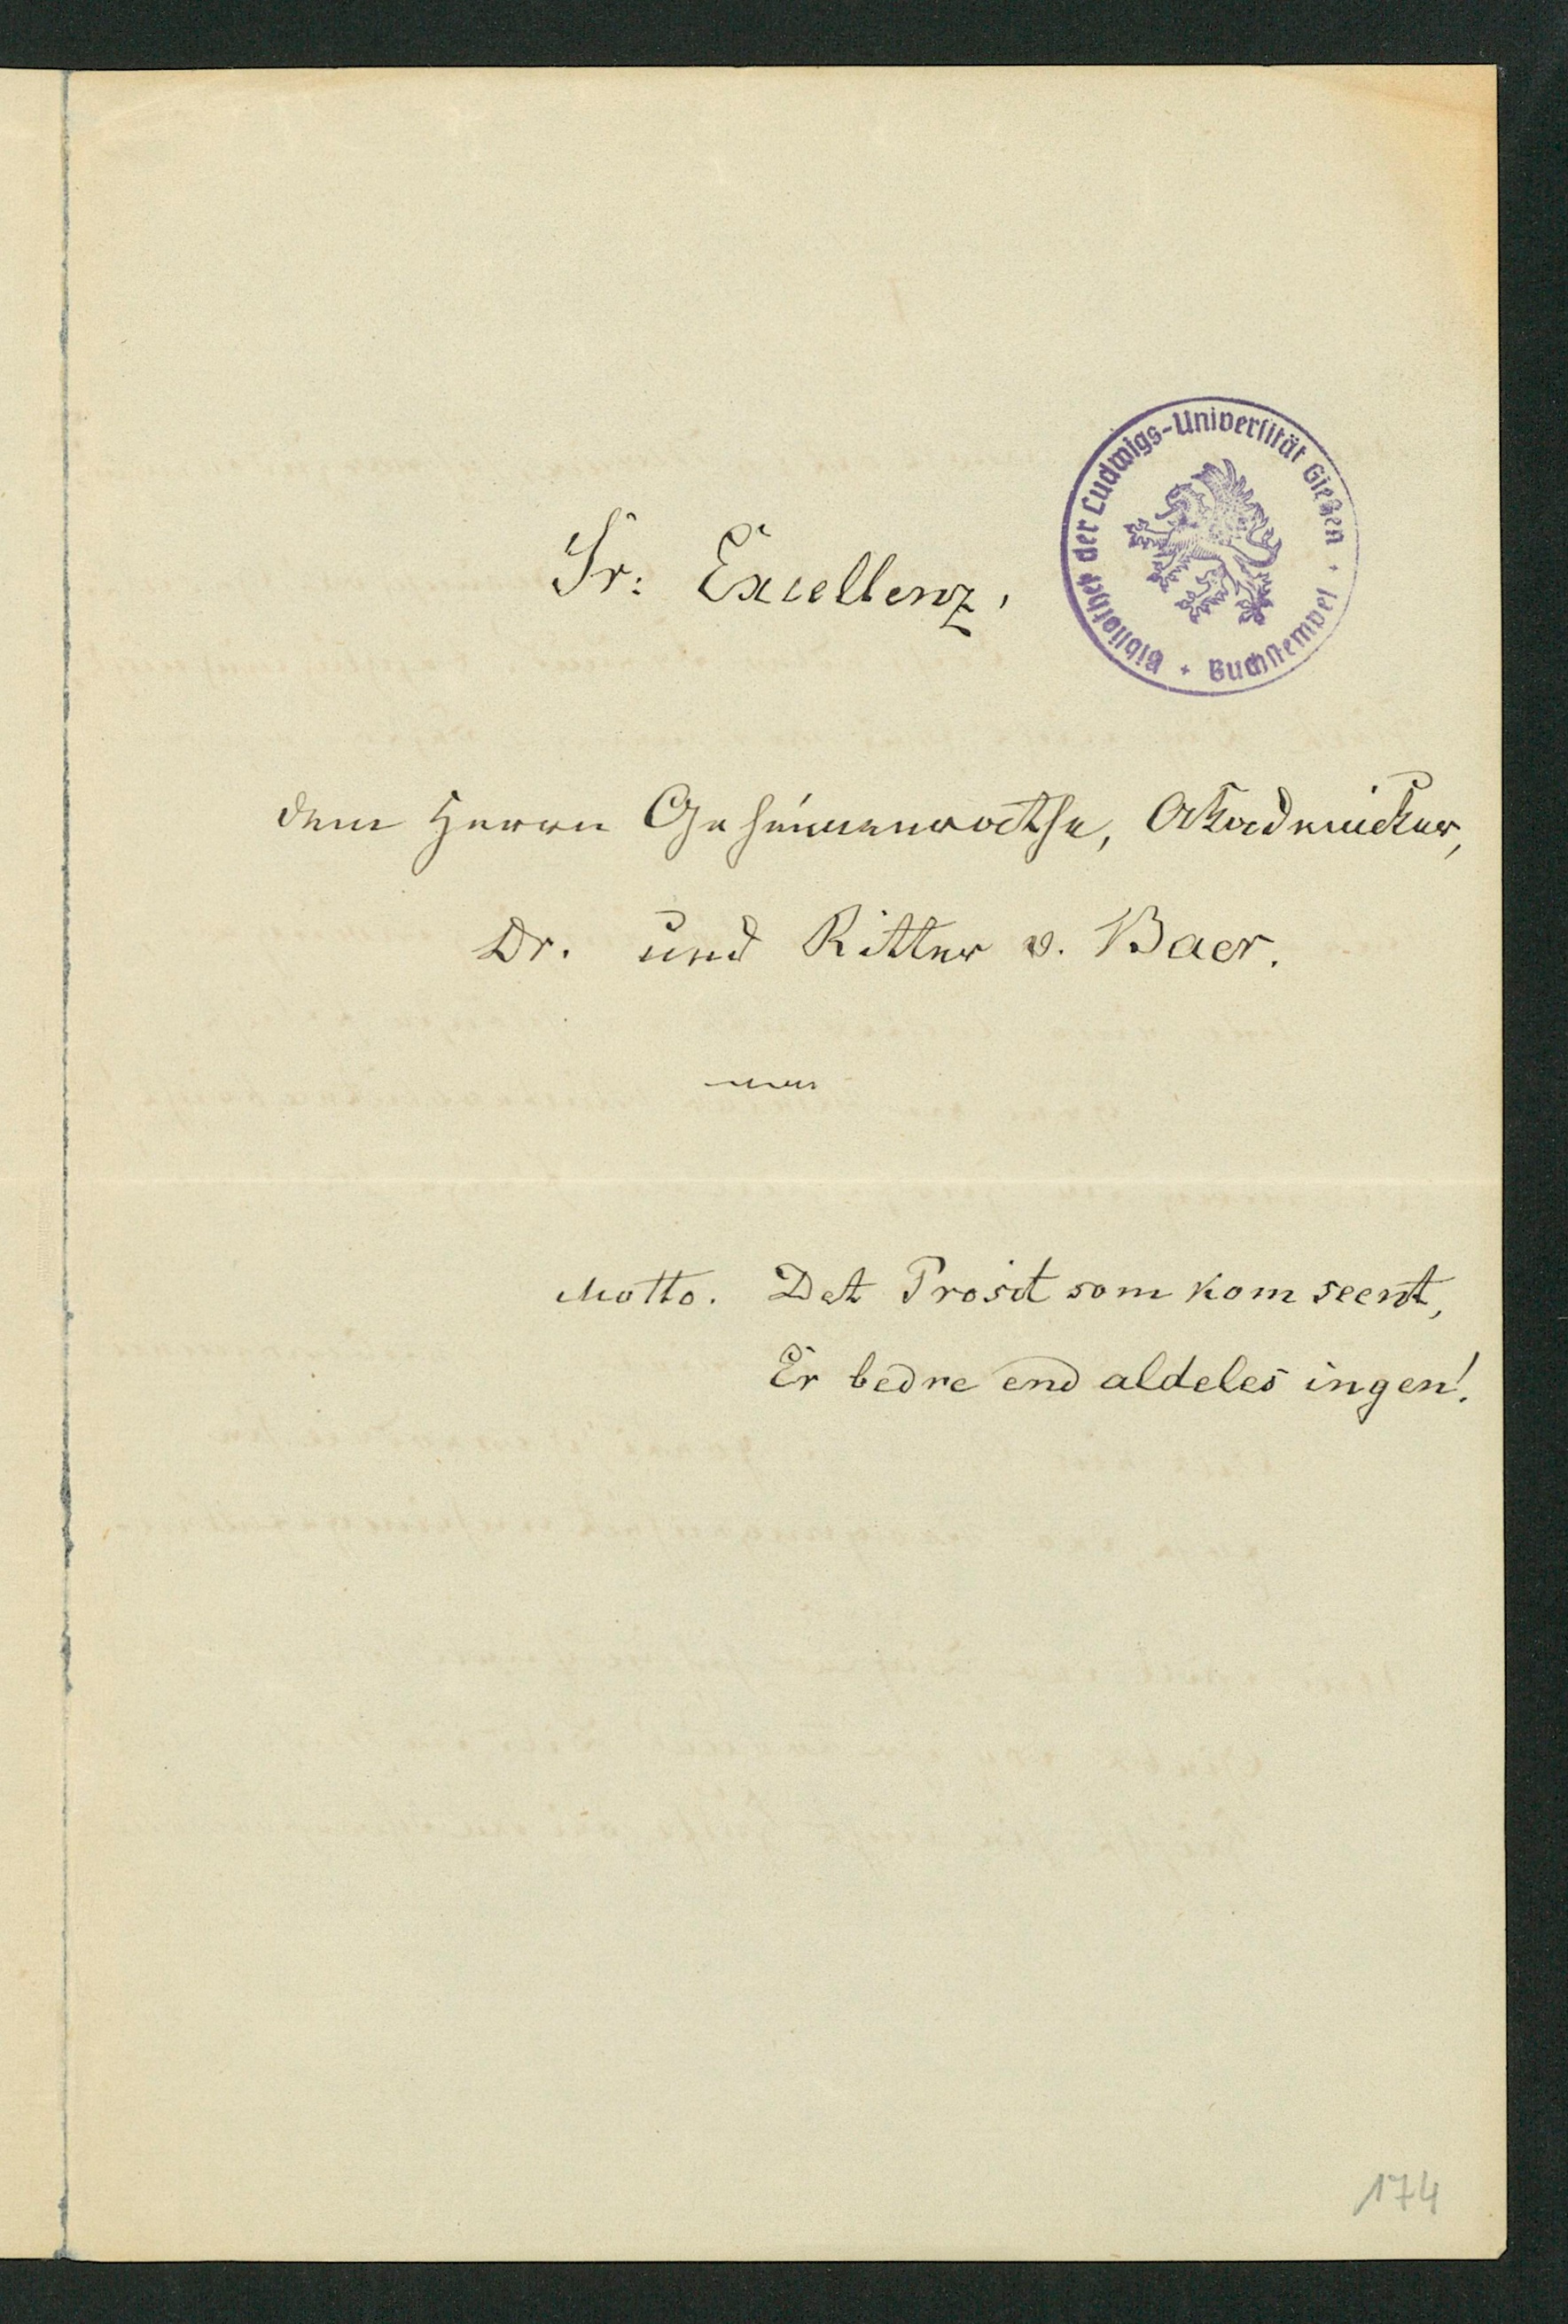 Bibliothek der Ludwigs-Universität Gießen + Buchstempel +
Sr: Excellenz,
dem Herrn Geheimenrathe, Akademiker,
Dr. und Ritter v. Baer.
Motto. Det Prosit som kom seent,
Er bedre end aldeles ingen!
174